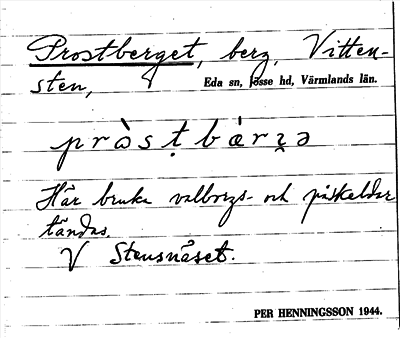 Prostberget, berg, Vitten-
sten, Eda sn, Jösse hd, Värmlands län.
pròsṭbárʓə
Här bruka valborgs- och påskeldar
tändas.
V Stensnäset.
PER HENNINGSSON 1944.